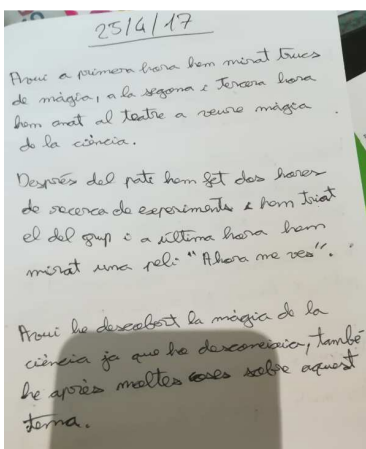 25/4/17
Avui a primera hora hem mirat trucs
de màgia, a la segona i tercera hora
hem anat al teatre a veure màgia
de la ciència.
Després del pati hem fet dos hores
de recerca de experiments i hem triat
el del grup i a última hora hem
mirat una peli "Ahora me ves".
Avui he descobert la màgia de la
ciència ja que ho desconeixia, també
he après moltes coses sobre aquest
tema.